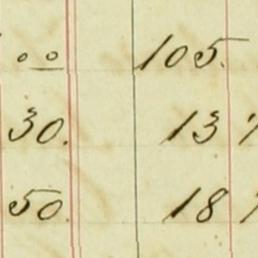 00 105.
30. 13
50. 18